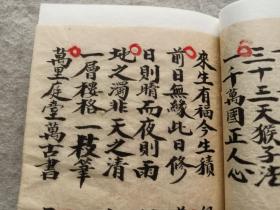 三十三天猴子法
一十萬國正人心
來生有福今生積
前日無緣此日修
日則晴而夜則雨
地之濁非天之清
一層樓格一枝筆
萬里庭堂萬古書